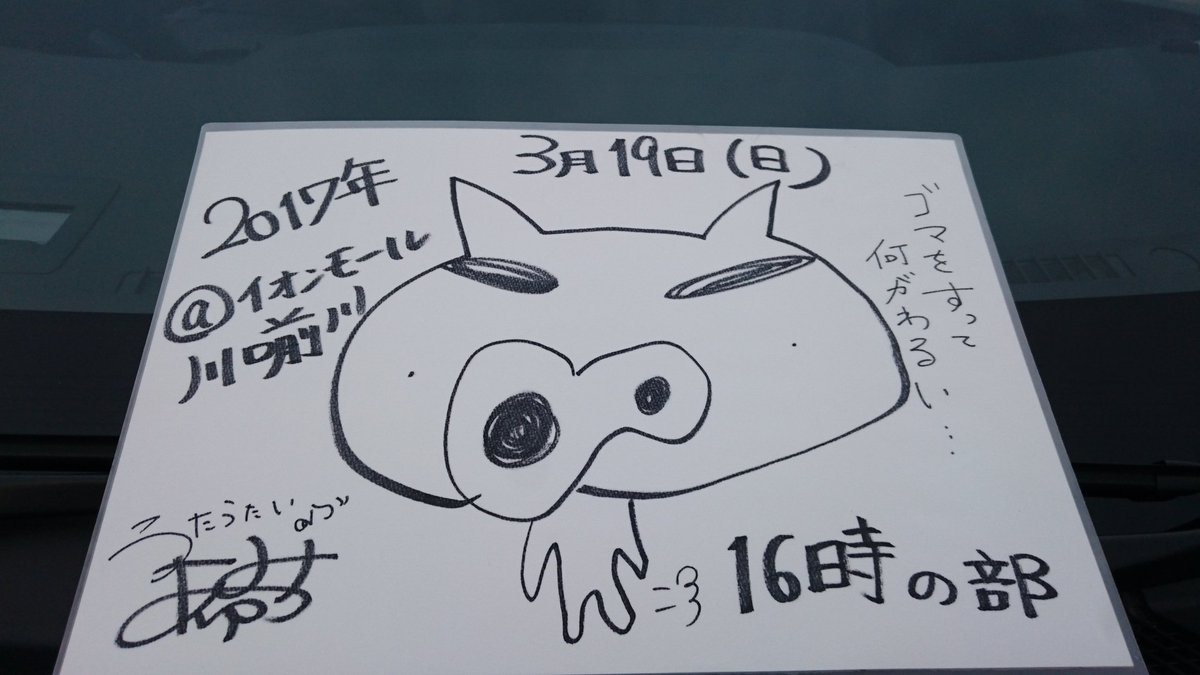 2017年
3月19日(日)
@イオンモール
川口前川
ゴマをすって
何がわるい…
うたうたいの
16時の部